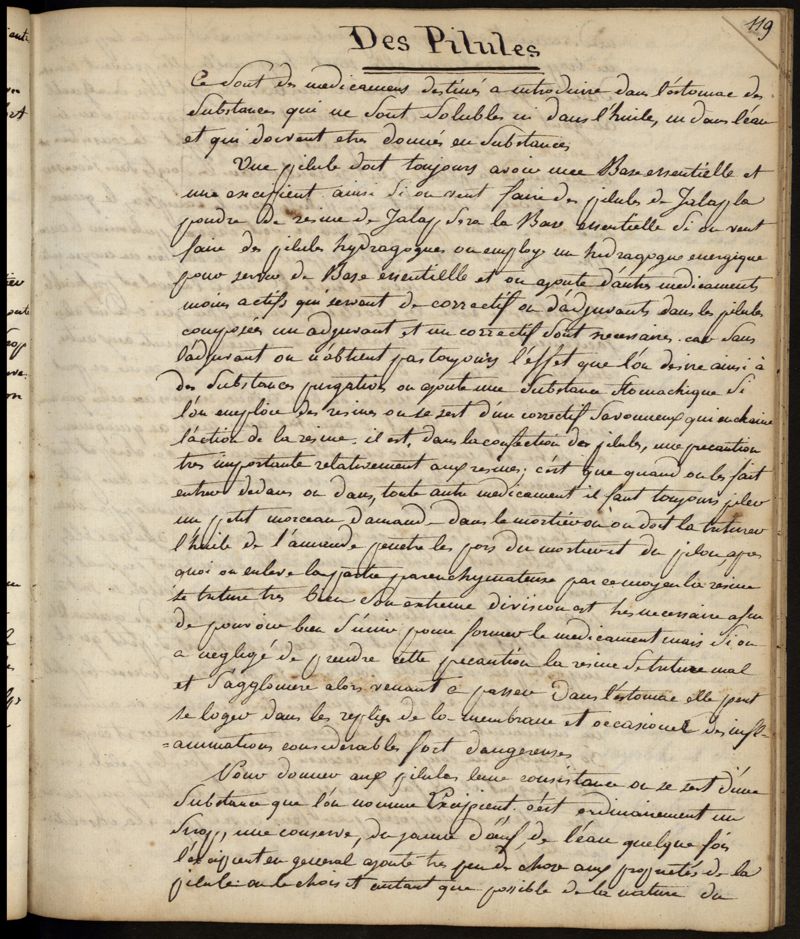 119
Des Pilules
Ce sont des medicamens destinés a introduire dans l'éstomac des
substances qui ne sont solubles ni dans l'huile, ni dans l'éau
et qui doivent etres donnés en substances
Une pilule doit toujours avoir une Base essentielle et
une excipient. ainsi si on veut faire des pilules de Jalap la
poudre de resine de Jalap sera la Base essentielle si on veut
faire des pilules hydragogues on employe un hidragogue energique
pour servir de Base essentiellle et on ajoute d'autres medicaments
moins actifs qui servent de correctif ou d'adjuvants dans les pilules
composées un adjuvant et un correctif sont necessaires. car sans
l'adjuvant on n'obtient pas toujours l'éffet que l'ón desire ainsi à
des substances purgatives on ajoute une substance stomachique si
l'ón emploie des resines on se sert d'un correctif savonneux qui enchaine
l'áction de la resine. il est, dans la confection des pilules, une precaution
tres importante relativement aux resines; c'est que quand on les fait
entrer dedans ou dans, toute autre medicament il faut toujours piler
un petit morceau d'amand dans le mortier où on doit la triturer
l'huile de l'amende penetre les pors du mortier et du pilon, apres
quoi on enleve la partie parenchymateuse par ce moyen la resine
se triture tres bien son extreme division est tres necessaire afin
de pouvoir bien s'unir pour former le medicament mais si on
a negligé de prendre cette precaution la resine se triture mal
et s'agglomere alors venant a passer dans l'éstomac elle peut
se loger dans les replies de la membrane et occasioner des infl-
=ammations considerables fort dangereuses
Pour donner aux pilules leur consistance on se sert d'úne
substance que l'ón nomme Excipient. c'ést ordinairement un
sirop, une conserve, du jaune d'óeuf, de l'éau quelque fois
l'éxcipient en general ajoute tres peu de chose aux propriétés de la
pilule. on le choisit autant que possible de la nature du